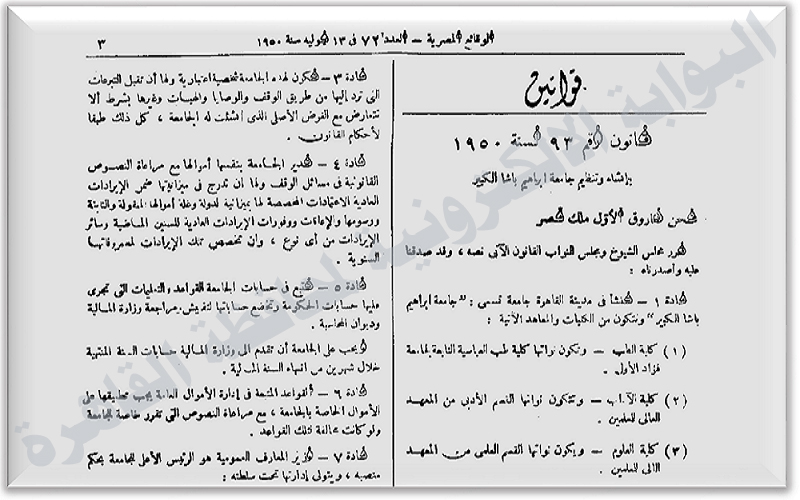 الوقائع المصرية – العدد ٧٢ فى ١٣ يوليه سنة ١٩٥٠
٣
قوانين
قانون رقم ٩٣ لسنة ١٩٥٠
بإنشاء وتنظيم جامعة ابراهيم باشا الكبير
نحن فاروق الأول ملك مصر
قرر مجلس الشيوخ ومجلس النواب القانون الآتى نصه ، وقد صدقنا
عليه وأصدرناه :
مادة ١ – تنشأ فى مدينة القاهرة جامعة تسمى : "جامعة ابراهيم
باشا الكبير" وتتكون من الكليات والمعاهد الآتية :
(١) كلية الطب – وتكون نواتها كلية طب العباسية التابعة لجامعة
فؤاد الأول .
(٢) كلية الآداب – وتتكون نواتها القسم الأدبى من المعهد
العالى للمعلمين .
(٣) كلية العلوم – ويكون نواتها القسم العلمى من المعهد
العالى للمعلمين .
مادة ٣ – تكون لهذه الجامعة شخصية اعتبارية ولها أن تقبل التبرعات
التى ترد إليها من طريق الوقف والوصايا والهبات وغيرها بشرط ألا
تتعارض مع الغرض الأصلى الذى أنشئت له الجامعة ، كل ذلك طبقا
لأحكام القانون .
مادة ٤ – تدير الجامعة بنفسها أموالها مع مراعاة النصوص
القانونية فى مسائل الوقف ولها أن تدرج فى ميزانيتها ضمن الإيرادات
العادية الاعتمادات المخصصة لها بميزانية الدولة وغلة أموالها المنقولة والثابتة
ورسومها والإعانات ووفورات الإيرادات العادية للسنين الماضية وسائر
الإيرادات من أى نوع ، وأن تخصص تلك الإيرادات لمصروفاتها
السنوية .
مادة ٥ – تتبع فى حسابات الجامعة القواعد والتعليمات التى تجرى
عليها حسابات الحكومة وتخضع حساباتها لتفتيش ومراجعة وزارة المالية
وديوان المحاسبة .
ويجب على الجامعة أن تتقدم الى وزارة المالية حسابات السنة المنتهية
خلال شهرين من انتهاء السنة المالية .
مادة ٦ – القواعد المتبعة فى إدارة الأموال العامة يجب تطبيقها على
الأموال الخاصة بالجامعة ، مع مراعاة النصوص التى تقرر خاصة للجامعة
ولو كانت مخالفة لتلك القواعد .
مادة ٧ – وزير المعارف العمومية هو الرئيس الأعلى للجامعة بحكم
منصبه ، ويتولى إدارتها تحت سلطته :
البوابة الإلكترونية لمحافظة القاهرة